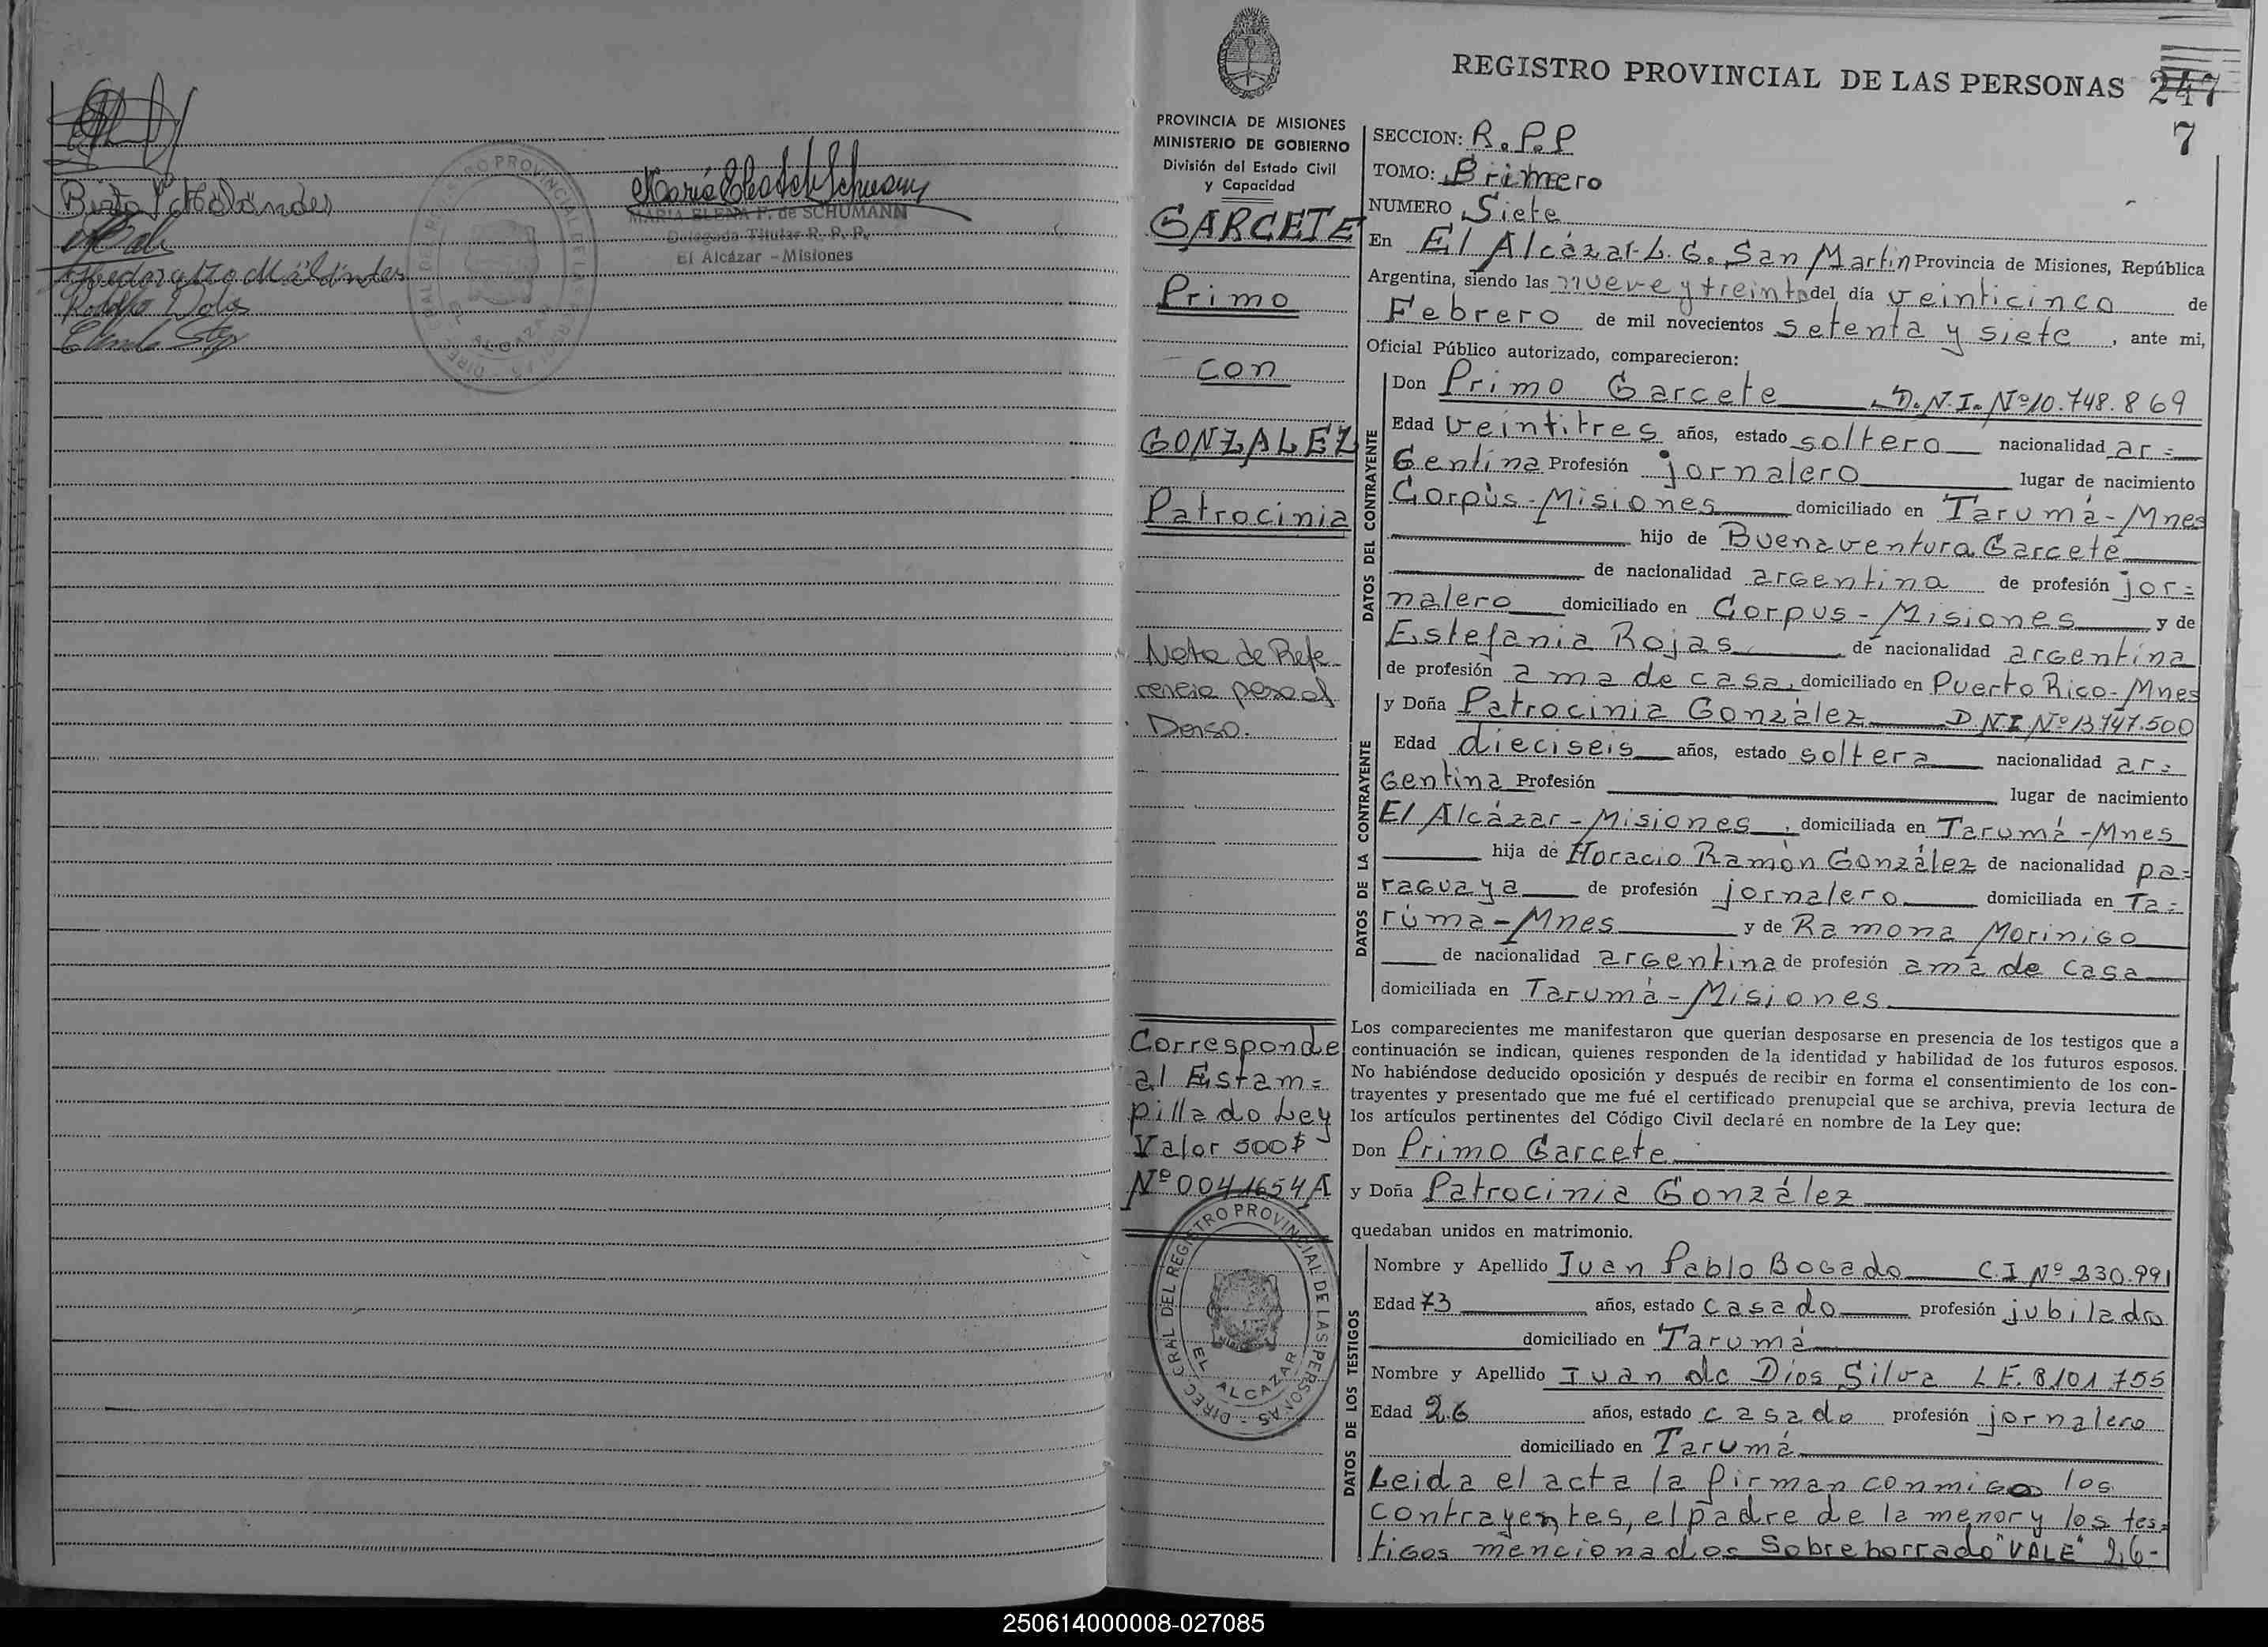 MARIA ELENA F. de SCHUMANN
Delegada Titular R. P. P.
El Alcázar - Misiones
REGISTRO PROVINCIAL DE LAS PERSONAS 247
7
PROVINCIA DE MISIONES
MINISTERIO DE GOBIERNO
División del Estado Civil
y Capacidad
GARCETE
Primo
con
GONZALEZ
Patrocinia
Nota de Refe
rencia
Denso.
Corresponde
al Estam=
pillado Ley
Valor 500$
Nº 0041654A
DIREC. GRAL DEL REGISTRO PROVINCIAL DE LAS PERSONAS
EL ALCAZAR
SECCION: R.P.P
TOMO: Primero
NUMERO Siete
En El Alcázar-L.G. San Martin Provincia de Misiones, República
Argentina, siendo las nueve y treinta del día veinticinco de
Febrero de mil novecientos setenta y siete, ante mi,
Oficial Público autorizado, comparecieron:
DATOS DEL CONTRAYENTE
Don Primo Garcete D.N.I. Nº 10.748.869
Edad veintitres años, estado soltero nacionalidad ar=
gentina Profesión jornalero lugar de nacimiento
Corpus-Misiones domiciliado en Tarumá-Mnes
hijo de Buenaventura Garcete
de nacionalidad argentina de profesión jor=
nalero domiciliado en Corpus-Misiones y de
Estefania Rojas de nacionalidad argentina
de profesión ama de casa, domiciliado en Puerto Rico-Mnes
DATOS DE LA CONTRAYENTE
y Doña Patrocinia González D.N.I. Nº 13.747.500
Edad dieciseis años, estado soltera nacionalidad ar=
gentina Profesión lugar de nacimiento
El Alcázar-Misiones, domiciliada en Tarumá-Mnes
hija de Horacio Ramón González de nacionalidad pa=
raguaya de profesión jornalero domiciliada en Ta=
rúma-Mnes y de Ramona Morinigo
de nacionalidad argentina de profesión ama de casa
domiciliada en Tarumá-Misiones
Los comparecientes me manifestaron que querían desposarse en presencia de los testigos que a
continuación se indican, quienes responden de la identidad y habilidad de los futuros esposos.
No habiéndose deducido oposición y después de recibir en forma el consentimiento de los con-
trayentes y presentado que me fué el certificado prenupcial que se archiva, previa lectura de
los artículos pertinentes del Código Civil declaré en nombre de la Ley que:
Don Primo Garcete
y Doña Patrocinia González
quedaban unidos en matrimonio.
DATOS DE LOS TESTIGOS
Nombre y Apellido Juan Pablo Bogado C.I Nº 230.991
Edad 73 años, estado casado profesión jubilado
domiciliado en Tarumá
Nombre y Apellido Juan de Dios Silva L.E. 8.101.755
Edad 26 años, estado casado profesión jornalero
domiciliado en Tarumá
Leida el acta la firman conmigo los
contrayentes, el padre de la menor y los tes=
tigos mencionados Sobreborrado "VALE" 26-
250614000008-027085